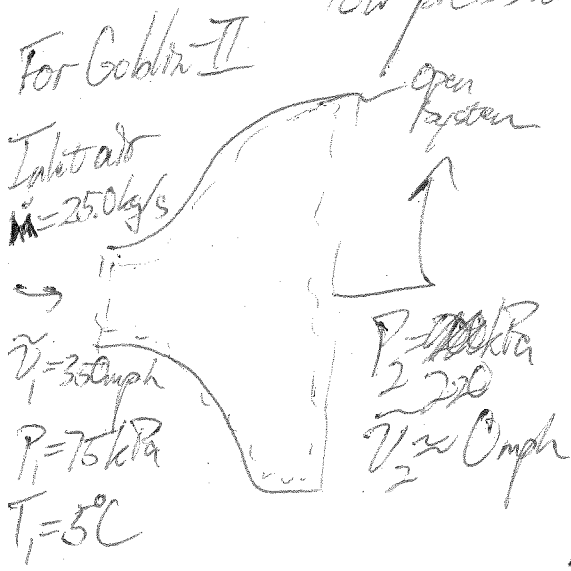 low press
For Goblin-II
Open
System
Inlet air
ṁ = 25.0 kg/s
Ṽ₁ = 350mph
P₁ = 75 kPa
T₁ = 5°C
P₂ = kPa
220
Ṽ₂ ≈ 0 mph